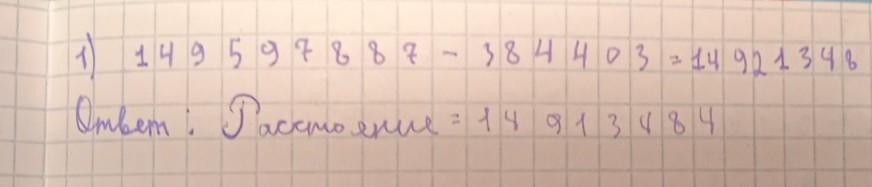 1) 149597887 - 384403 = 14921348
Ответ: Расстояние = 14913484